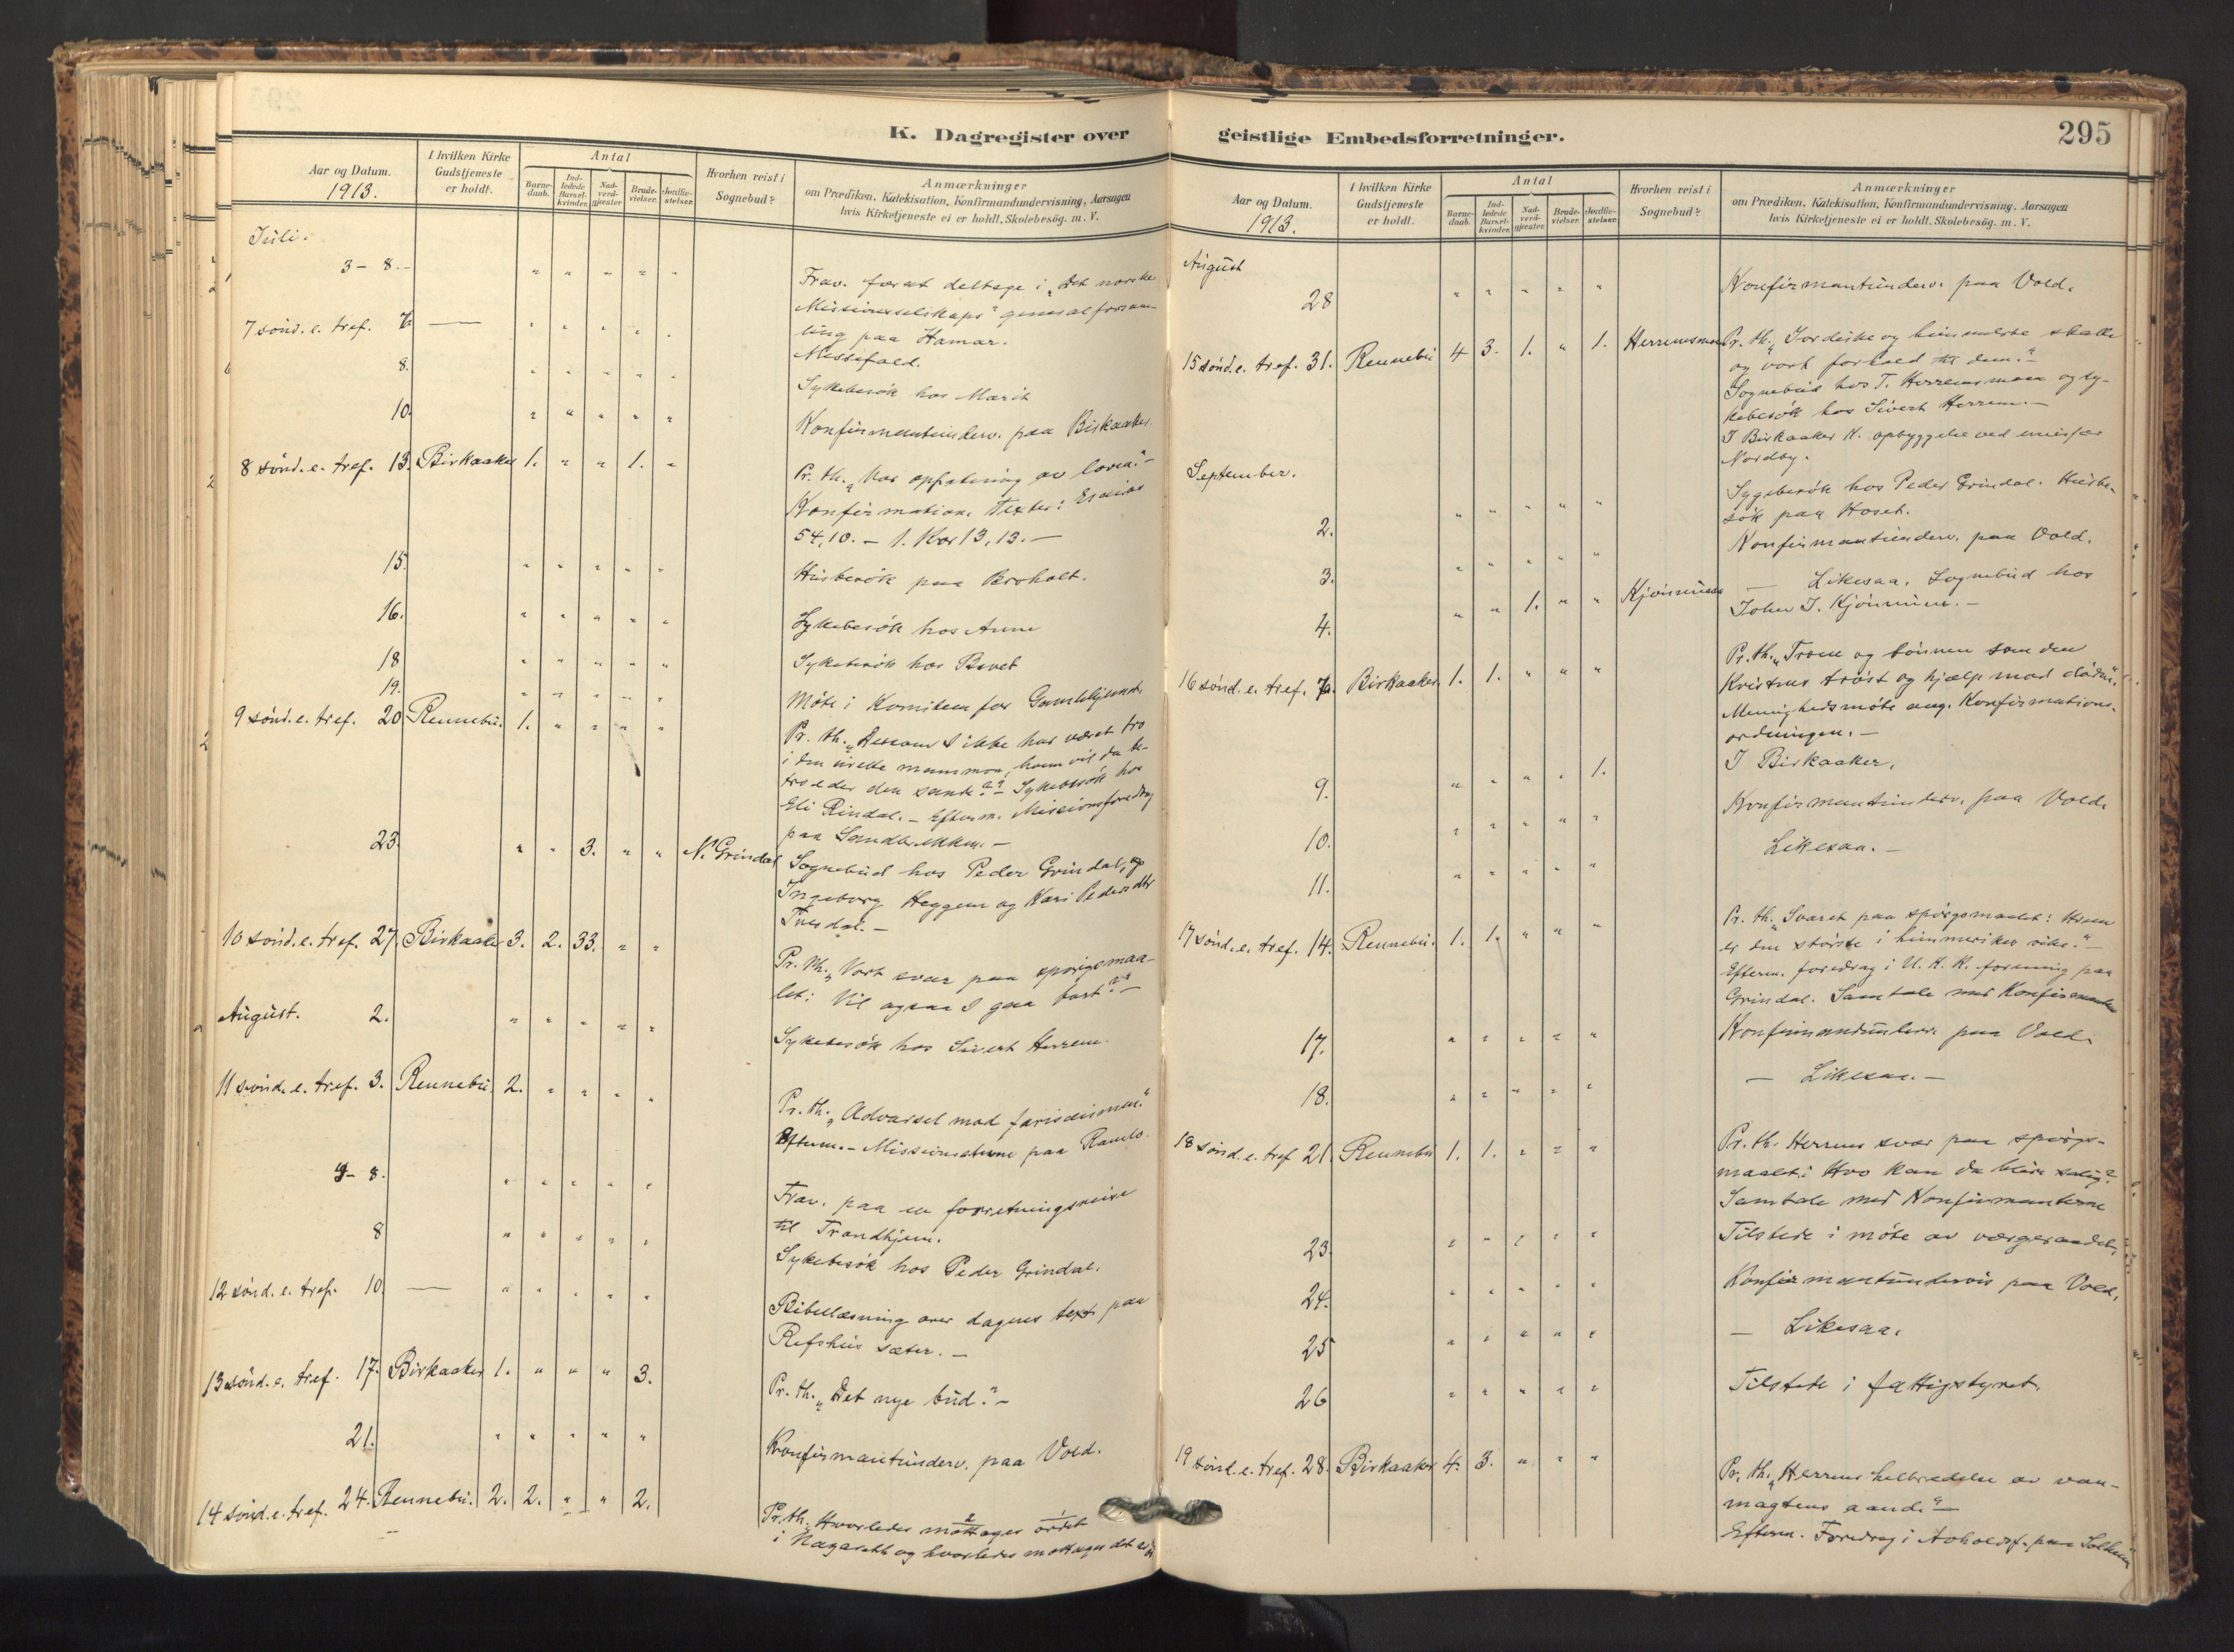 K. Dagregister over
Aar og Datum.
1913.
I hvilken Kirke
Gudstjeneste
er holdt.
Antal
Barne-
daab.
Ind-
ledede
Barsel-
kvinder.
Nad-
verd-
gjæster
Brude-
vielser.
Jordfæ-
stelser.
Hvorhen reist i
Sognebud?
Anmærkninger
om Prædiken, Katekisation, Konfirmandundervisning, Aarsagen
hvis Kirketjeneste ei er holdt, Skolebesög. m. V.
Juli.
3 - 8. - " " " " " Frav. for at deltage i „Det norske
Missionsselskaps" generalforsam-
7 sönd. e. tref. — " " " " " ling paa Hamar.
Messefald.
8. " " " " " Sykebesök hos Marit
10. " " " " " Konfirmantunderv. paa Birkaaker.
8 sönd. e. tref. 13. Birkaaker 1. " " 1. " Pr. th. „Vor opfatning av loven." -
Konfirmation. Texter: Esaias
54,10. - 1. Kor 13,13. -
15. " " " " " Husbesök paa Broholt.
16. " " " " " Sykebesök hos Anne
18 " " " " " Sykebesök hos Beret
19. " " " " " Möte i Komiteen for Gamlehjemmet.
9 sönd. e. tref. 20. Rennebu. 1. " " " " Pr. th. „Dersom I ikke har været tro
i den urette mammon, hvem vil da be-
tro eder den sande?" Sykebesök hos
Eli Rindal. - Efterm. Missionsforedrag
paa Sandbrekken. -
23. " " 3. " " N. Grindal Sognebud hos Peder Grindal, og
Ingeborg Heggem og Kari Pedersdtr
10 sönd. e. tref. 27. Birkaaker 3. 2. 33. " " Pr. th. „Vort svar paa spörgsmaa-
let: Vil ogsaa I gaa bort?" -
August. 2. " " " " " Sykebesök hos Sivert Herrem.
11 sönd. e. tref. 3. Rennebu. 2. " " " " Pr. th. „Advarsel mod farisæismen."
Efterm. - Missionsstevne paa Ramlo.
4 - 8. " " " " " Frav. paa en forretningsreise
til Trondhjem.
8 " " " " " Sykebesök hos Peder Grindal.
12 sönd. e. tref. 10. — " " " " " Bibellæsning over dagens text paa
Refshus sæter. -
13 sönd. e. tref. 17. Birkaaker 1. " " " 3. Pr. th. „Det nye bud." -
21. " " " " " Konfirmantunderv. paa Vold.
14 sönd. e. tref. 24. Rennebu. 2. 2. " " 2. Pr. th. „Hvorledes mottages ordet
i Nazareth og hvorledes mottages det
geistlige Embedsforretninger.
295
Aar og Datum.
1913.
I hvilken Kirke
Gudstjeneste
er holdt.
Antal
Barne-
daab.
Ind-
ledede
Barsel-
kvinder.
Nad-
verd-
gjæster
Brude-
vielser.
Jordfæ-
stelser.
Hvorhen reist i
Sognebud?
Anmærkninger
om Prædiken, Katekisation, Konfirmandundervisning, Aarsagen
hvis Kirketjeneste ei er holdt, Skolebesög. m. V.
August
28 " " " " " Konfirmantunderv. paa Vold.
15 sönd. e. tref. 31. Rennebu 4 3. 1. " 1. Herremsmoen Pr. th. „Jordiske og himmelske skatte
og vort forhold til dem." -
Sognebud hos T. Herremsmoen og sy-
kebesök hos Sivert Herrem. -
I Birkaaker K. opbyggelse ved emissær
Nordby.
September.
2. " " " " " Sygebesök hos Peder Grindal. Husbe-
sök paa Hoset.
3. " " " " " Konfirmantunderv. paa Vold.
4. " " 1. " " — Likesaa. Sognebud hos
John J. Kjönnum. -
16 sönd. e. tref. 7. Birkaaker. 1. 1. " " " Pr. th. „Troen og bönnen som den
Kristnes tröst og hjælp mod döden".
Menighedsmöte ang. Konfirmations-
ordningen. -
9. " " " " 1. I Birkaaker.
10. " " " " " Konfirmantunderv. paa Vold.
11. " " " " " Likesaa. -
17 sönd. e. tref. 14. Rennebu. 1. 1. " " " Pr. th. „Svaret paa spörgsmaalet: Hvem
er den störste i himmeriken rike." -
Efterm. foredrag i U. K. K. forening paa
Grindal. Samtale med Konfirmanter
17. " " " " " Konfirmandunderv. paa Vold.
18. " " " " " — Likesaa. -
18 sönd. e. tref 21. Rennebu 1. 1. " " " Pr. th. Herrens svar paa spörgs-
maalet: Hvo kan da blive salig?
Samtale med Konfirmanterne
23. " " " " " Tilstede i möte av værgeraadet.
24. " " " " " Konfirmantundervis paa Vold.
25 " " " " " — Likesaa.
26 " " " " " Tilstede i fattigstyret.
19 sönd. e. tref. 28. Birkaaker 4. 3. " " " Pr. th. „Herrens helbredelse av van-
magtens aand." -
Efterm. Foredrag i Avholdsf. paa Solheim